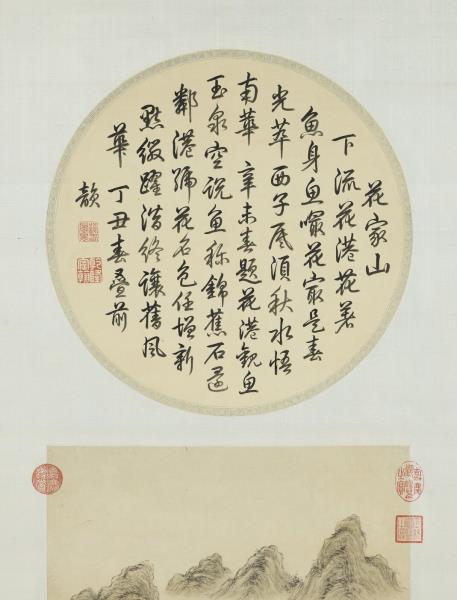 花家山
下流花港花著
魚身魚嘬花最是春
光萃西子底須秋水悟
南華 辛未春題花港觀魚
玉泉空說魚稱錦蕉石還
鄰港號花名色任增新
點綴躍潛終讓舊風
華 丁丑春疊前
韻